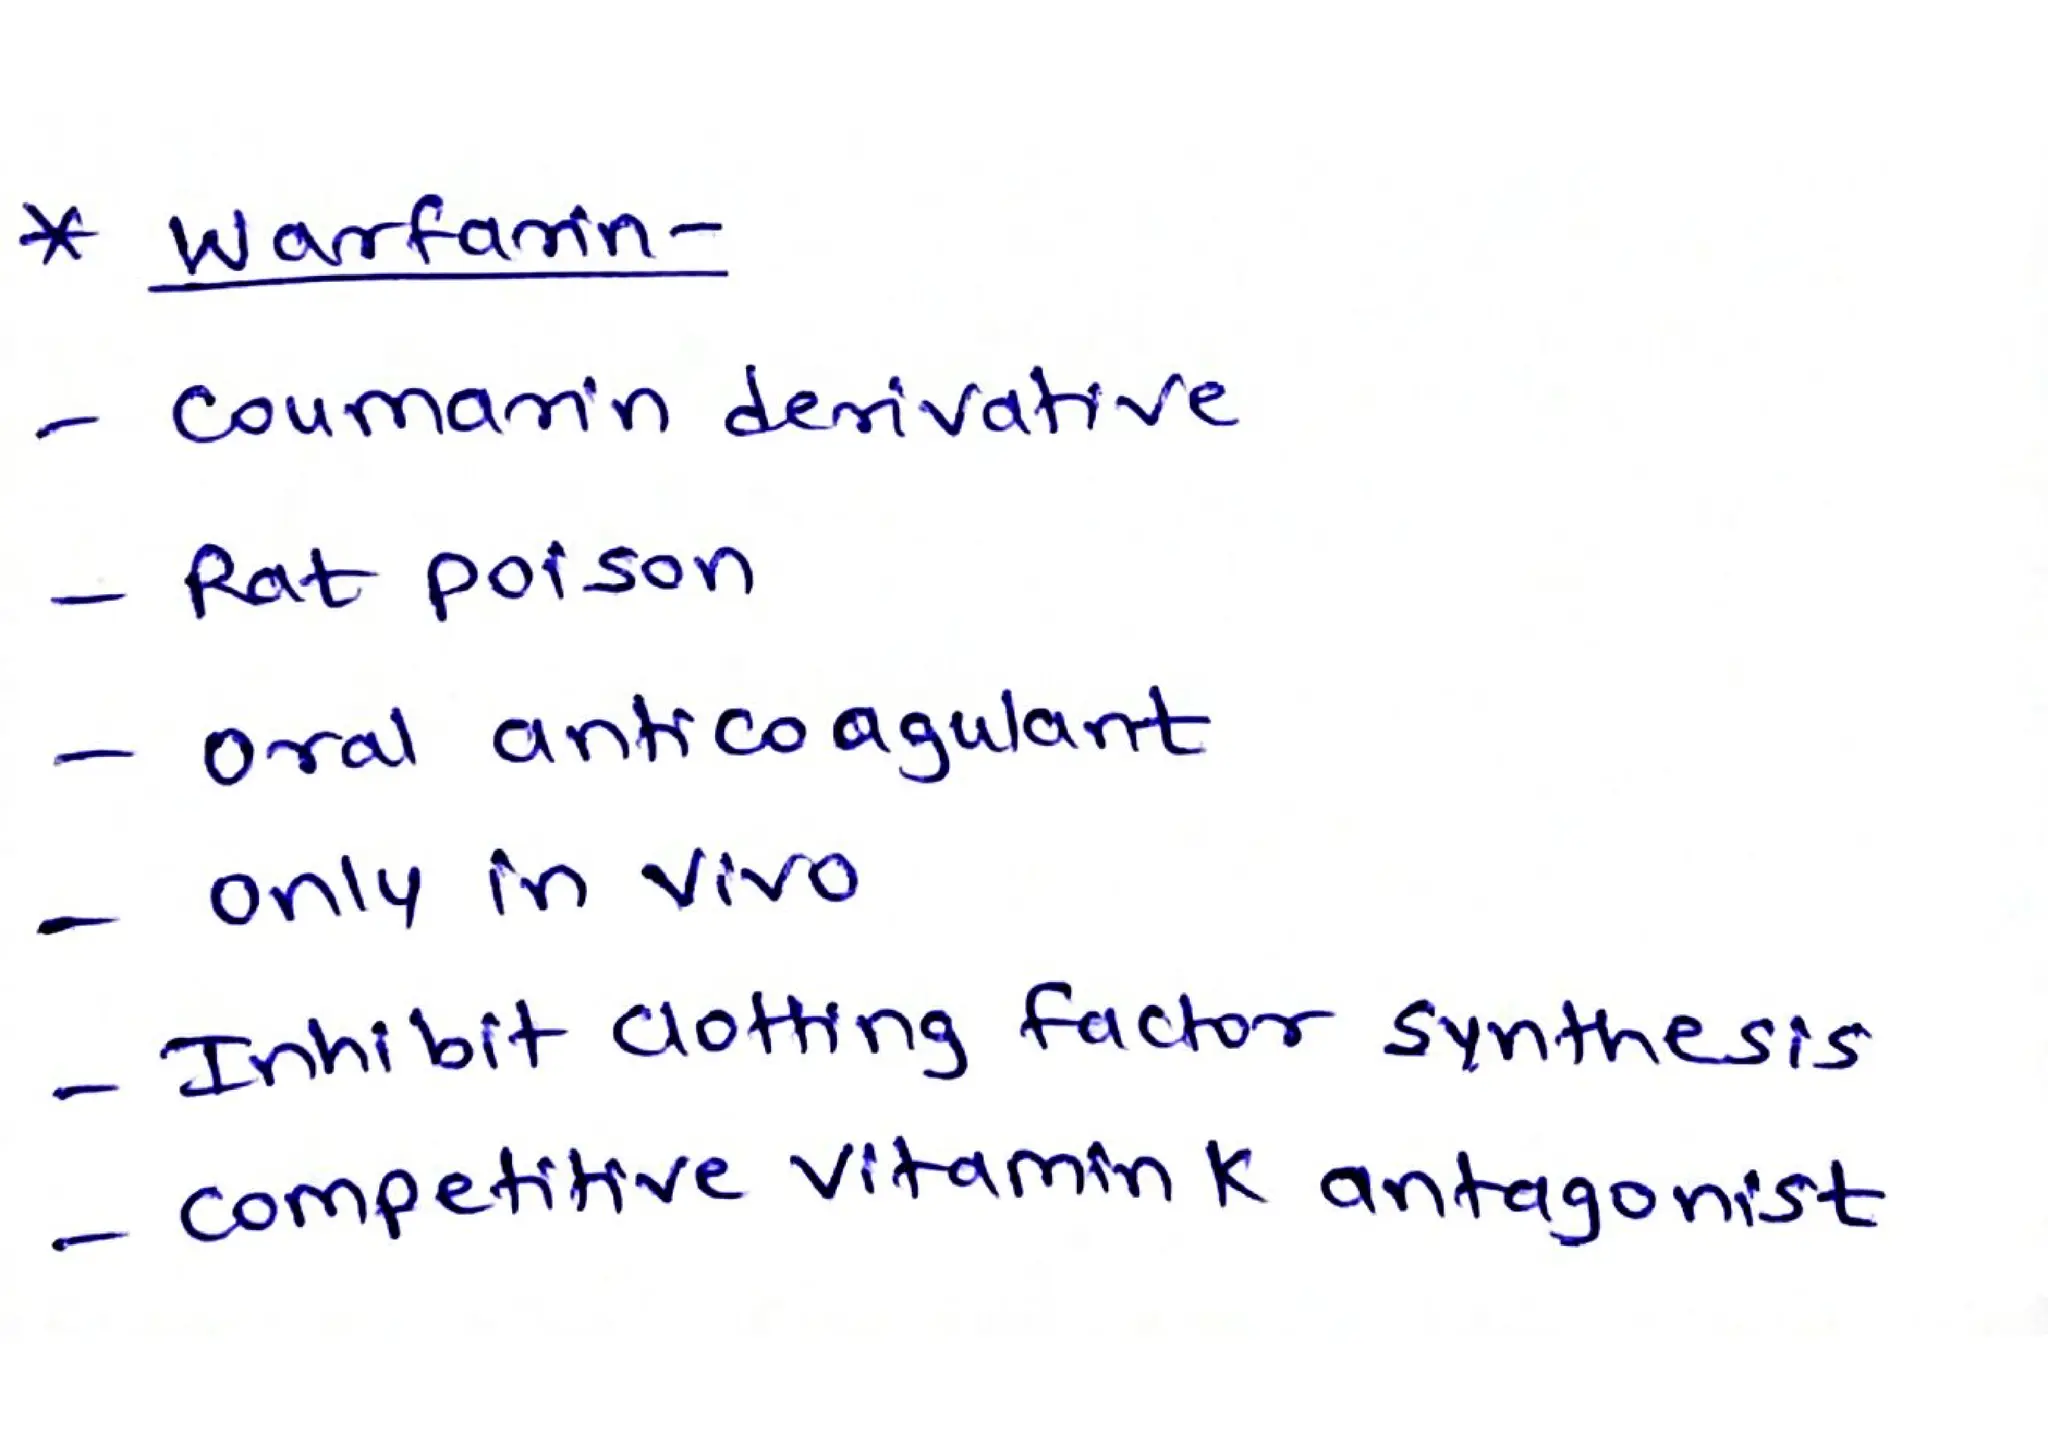 * Warfarin-
- Coumarin derivative
- Rat poison
- Oral anticoagulant
- only in vivo
- Inhibit clotting factor synthesis
- competitive vitamin K antagonist